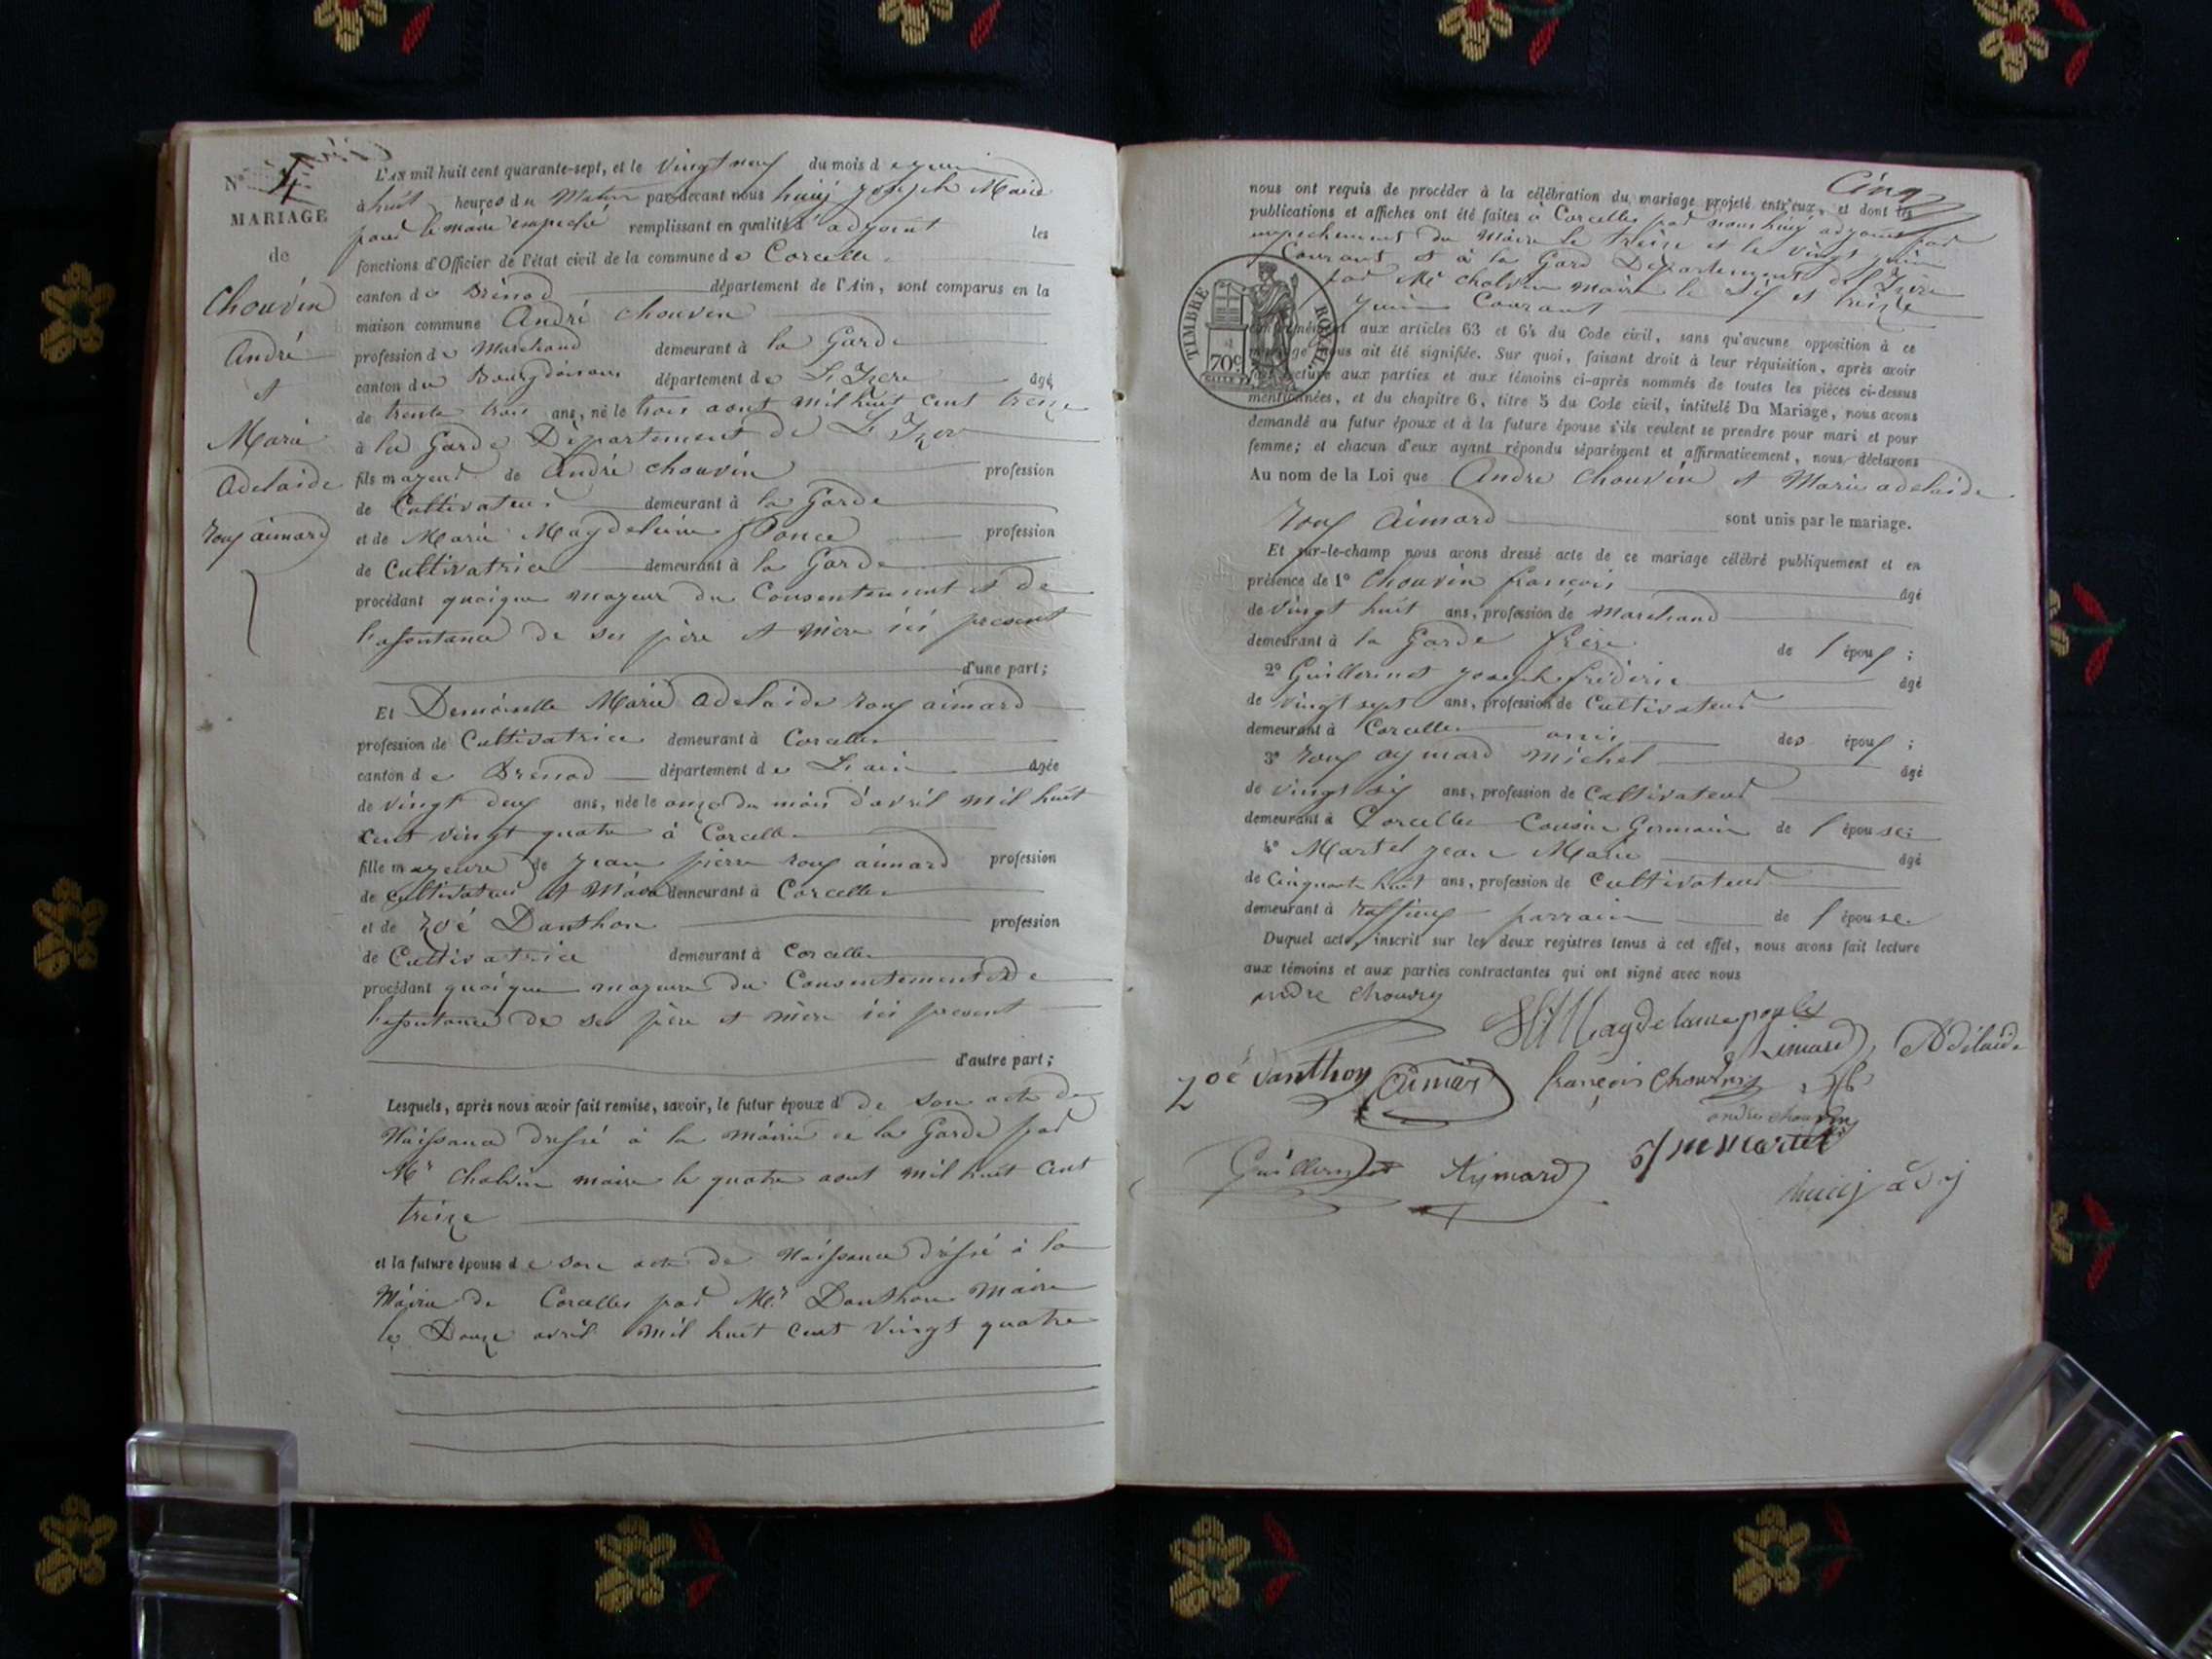 N° 4
MARIAGE
de
Chouvin
André
et
Marie
Adelaide
roux aimard
L'AN mil huit cent quarante-sept, et le vingt neuf du mois de juin
à huit heures du Matin par-devant nous huiej joseph Marie
pour le maire empeché remplissant en qualité d'adjoint les
fonctions d'Officier de l'état civil de la commune de Corcelle
canton de Brénod département de l'Ain, sont comparus en la
maison commune André chouvin
profession de Marchand demeurant à la Garde
canton du Bourgdoisans département de L'Izere âgé
de trente trois ans, né le trois aout mil huit cent treize
à la Garde Département de L'Izere
fils majeur de André chouvin profession
de Cultivateur demeurant à la Garde
et de Marie Magdeleine Ponce profession
de Cultivatrice demeurant à la Garde
procédant quoique majeur du Consentement et de
l'assistance de ses père et mère ici present
d'une part;
Et Demoiselle Marie Adelaide roux aimard
profession de Cultivatrice demeurant à Corcelle
canton de Brénod département de L'ain âgée
de vingt deux ans, née le onze du mois d'avril mil huit
cent vingt quatre à Corcelle
fille majeure de jean pierre roux aimard profession
de cultivateur et Maire demeurant à Corcelle
et de Zoé Danthon profession
de Cultivatrice demeurant à Corcelle
procédant quoique majeure du Consentement et de
l'assistance de ses père et mère ici present
d'autre part;
Lesquels, après nous avoir fait remise, savoir, le futur époux d de son acte de
Naissance dressé à la mairie de la Garde par
Mr Chalvin maire le quatre aout mil huit cent
treize
et la future épouse de son acte de Naissance dressé à la
Mairie de Corcelles par Mr Danthon maire
le Douze avril mil huit cent vingt quatre
Cinq
nous ont requis de procéder à la célébration du mariage projeté entr'eux, et dont les
publications et affiches ont été faites à Corcelles par nous huiej adjoint par
empechement du Maire le treize et le vingt juin
Courant et à la Gard Département de l'Izere
par Mr Chalvin maire le six et treize
juin Courant
TIMBRE ROYAL
70c
conformément aux articles 63 et 64 du Code civil, sans qu'aucune opposition à ce
mariage nous ait été signifiée. Sur quoi, faisant droit à leur réquisition, après avoir
fait lecture aux parties et aux témoins ci-après nommés de toutes les pièces ci-dessus
mentionnées, et du chapitre 6, titre 5 du Code civil, intitulé Du Mariage, nous avons
demandé au futur époux et à la future épouse s'ils veulent se prendre pour mari et pour
femme; et chacun d'eux ayant répondu séparément et affirmativement, nous déclarons
Au nom de la Loi que Andre Chouvin et Marie adelaide
roux Aimard sont unis par le mariage.
Et sur-le-champ nous avons dressé acte de ce mariage célébré publiquement et en
présence de 1° Chouvin françois âgé
de vingt huit ans, profession de Marchand
demeurant à la Garde frère de l'époux;
2° Guillermet joseph frédéric âgé
de vingt sept ans, profession de Cultivateur
demeurant à Corcelle ami des époux;
3° roux aymard michel âgé
de vingt six ans, profession de Cultivateur
demeurant à Corcelle Cousin Germain de l'épouse;
4° Martel jean Marie âgé
de Cinquante huit ans, profession de Cultivateur
demeurant à ruffieux parrain de l'épouse.
Duquel acte, inscrit sur les deux registres tenus à cet effet, nous avons fait lecture
aux témoins et aux parties contractantes qui ont signé avec nous
andre chouvin
Magdelaine
Aimard Adélaide
Zoé Danthon Aimard françois chouvin
andre chouvin
Guillermet Aymard jm martel
huiej adj